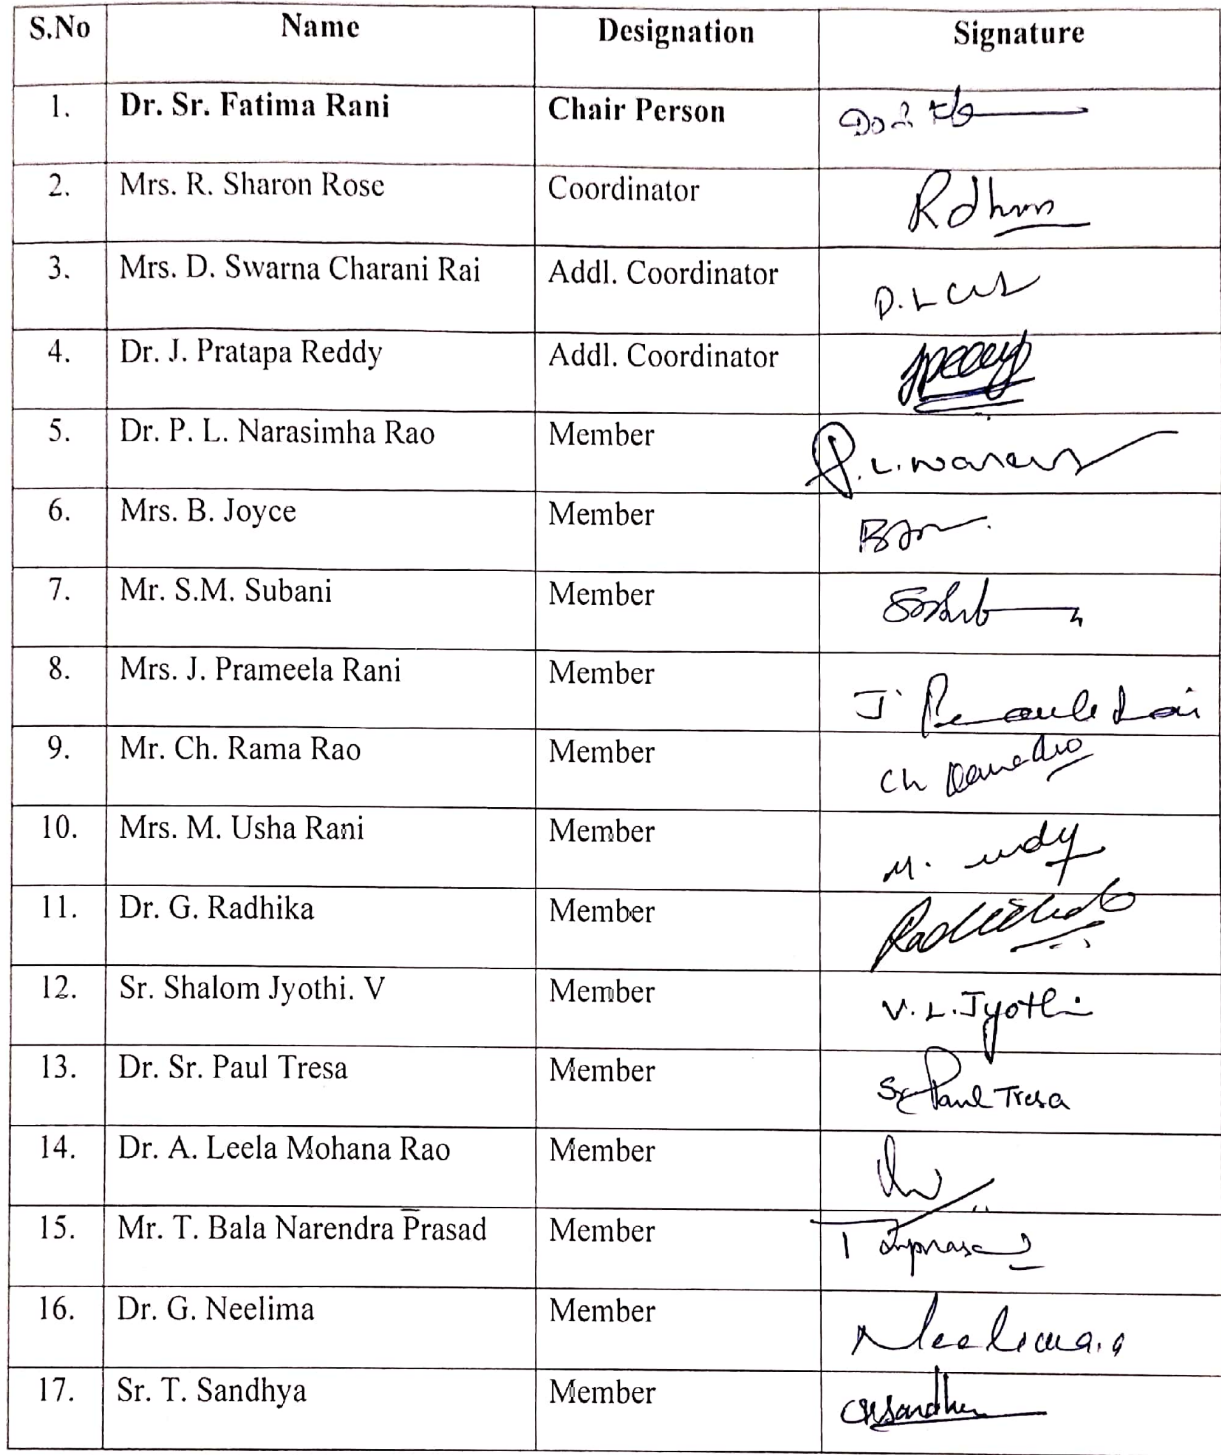 S.No Name Designation Signature
1. Dr. Sr. Fatima Rani Chair Person
2. Mrs. R. Sharon Rose Coordinator
3. Mrs. D. Swarna Charani Rai Addl. Coordinator
4. Dr. J. Pratapa Reddy Addl. Coordinator
5. Dr. P. L. Narasimha Rao Member
6. Mrs. B. Joyce Member
7. Mr. S.M. Subani Member
8. Mrs. J. Prameela Rani Member
9. Mr. Ch. Rama Rao Member
10. Mrs. M. Usha Rani Member
11. Dr. G. Radhika Member
12. Sr. Shalom Jyothi. V Member V. L. Jyothi
13. Dr. Sr. Paul Tresa Member Sr Paul Tresa
14. Dr. A. Leela Mohana Rao Member
15. Mr. T. Bala Narendra Prasad Member
16. Dr. G. Neelima Member Neelima. G
17. Sr. T. Sandhya Member